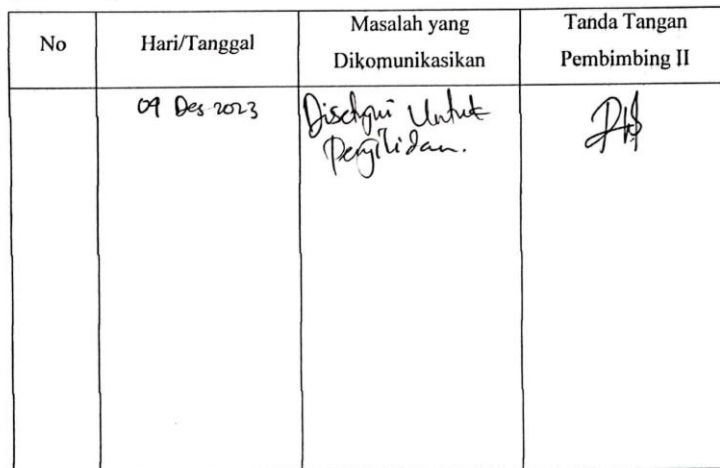 No
Hari/Tanggal
Masalah yang
Dikomunikasikan
Tanda Tangan
Pembimbing II
09 Des 2023
Disetujui Untuk